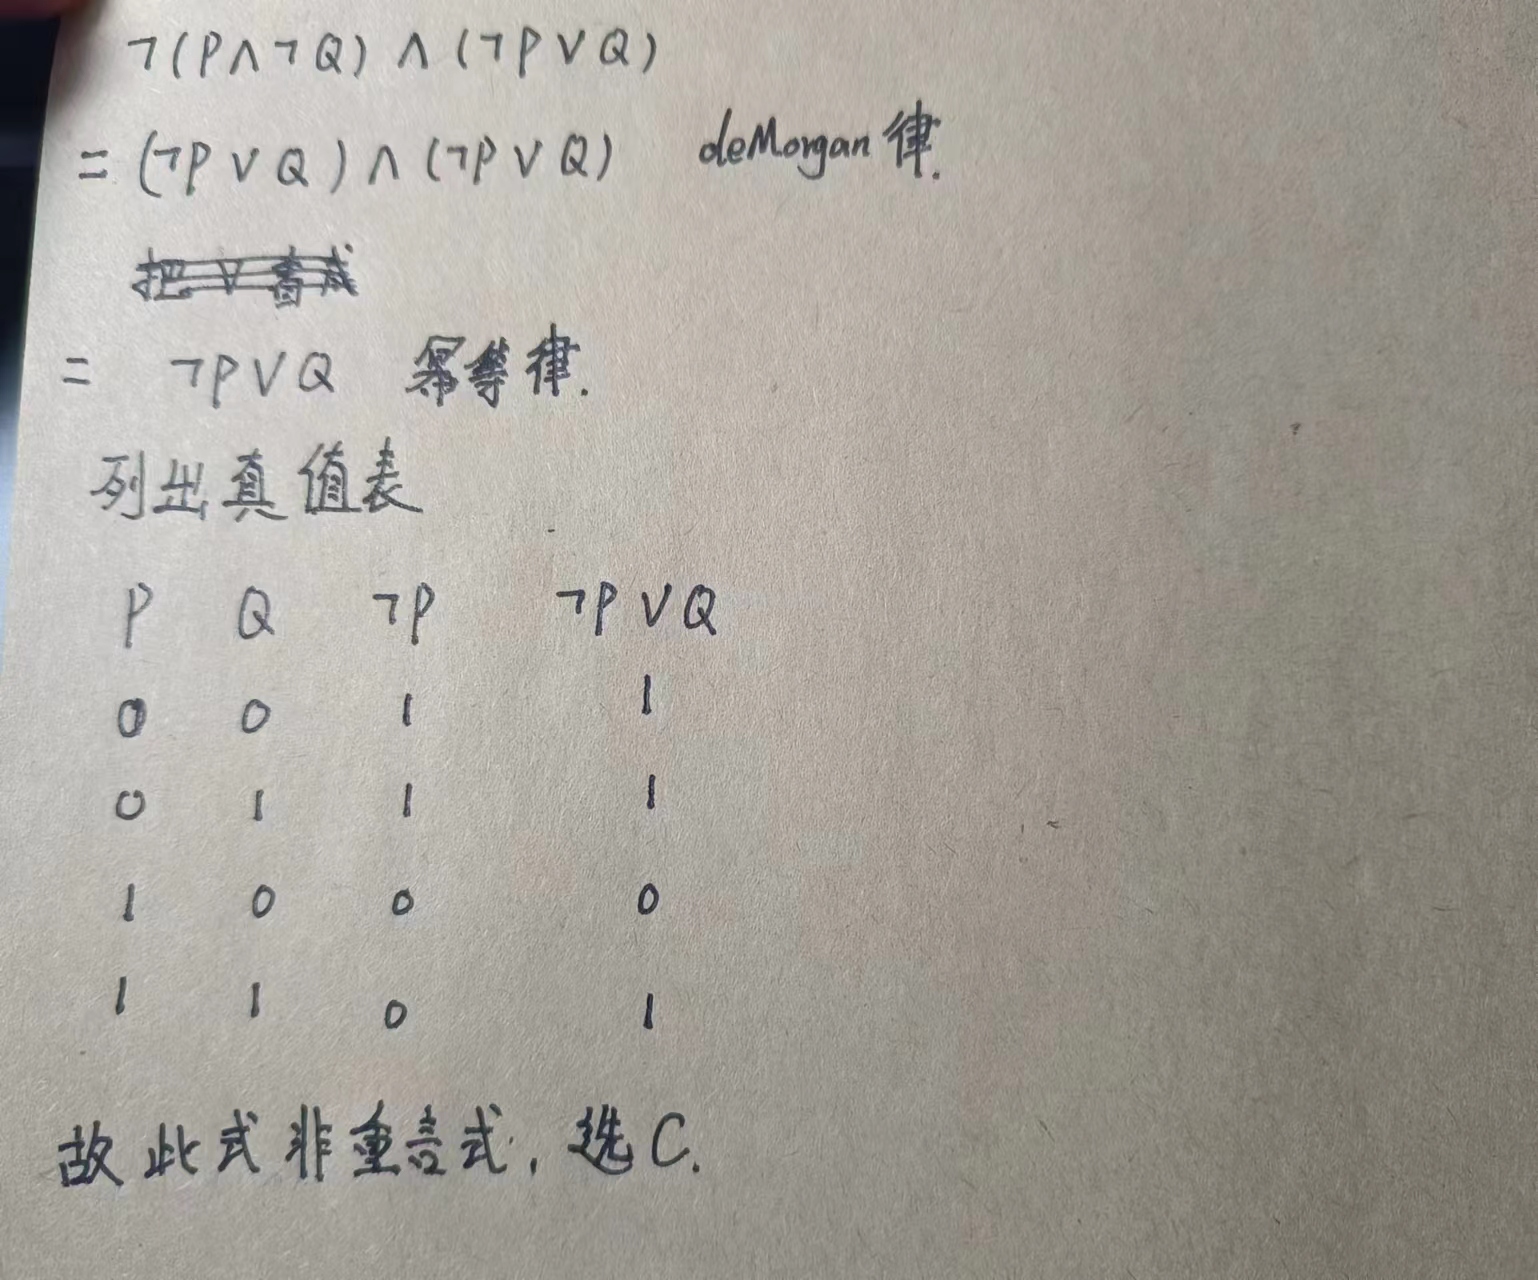 ¬(P∧¬Q)∧(¬P∨Q)
= (¬P∨Q)∧(¬P∨Q) deMorgan律.
把∨看成
= ¬P∨Q 幂等律.
列出真值表
P Q ¬P ¬P∨Q
0 0 1 1
0 1 1 1
1 0 0 0
1 1 0 1
故此式非重言式, 选C.